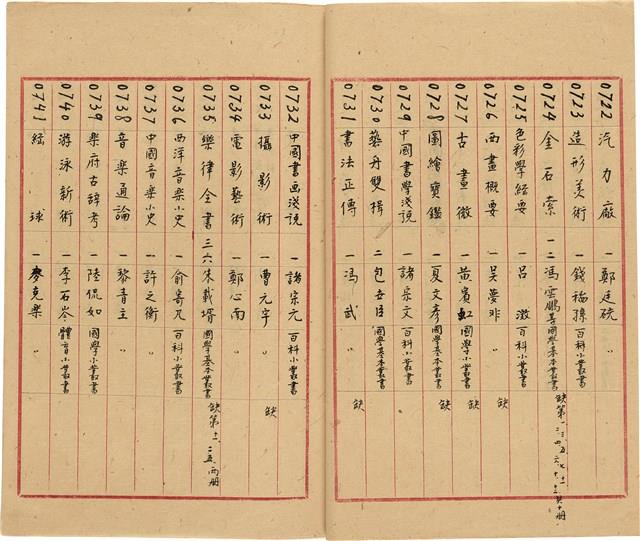 0722 汽力廠 一 鄭廷硯 〃
0723 造形美術 一 錢稻孫 百科小叢書
0724 金石索 一二 馮雲鵬等 國學基本叢書 缺第一二三四五六七十十一十二共十册
0725 色彩學綱要 一 呂澂 百科小叢書
0726 西畫概要 一 吳夢非 〃 缺
0727 古畫微 一 黃賓虹 國學小叢書 缺
0728 圖繪寶鑑 一 夏文彥 國學基本叢書 缺
0729 中國書學淺說 一 諸宗元 百科小叢書
0730 藝舟雙楫 二 包世臣 國學基本叢書
0731 書法正傳 一 馮武 〃 缺
0732 中國書画淺說 一 諸宗元 百科小叢書
0733 攝影術 一 曹元宇 〃 缺
0734 電影藝術 一 鄭心南 〃
0735 樂律全書 三六 朱載堉 國學基本叢書 缺第十一、二五、兩册
0736 西洋音樂小史 一 俞寄凡 百科小叢書
0737 中國音樂小史 一 許之衡 〃
0738 音樂通論 一 黎青主 〃
0739 樂府古辭考 一 陸侃如 國學小叢書
0740 游泳新術 一 李石岑 體育小叢書
0741 絨球 一 麥克樂 〃